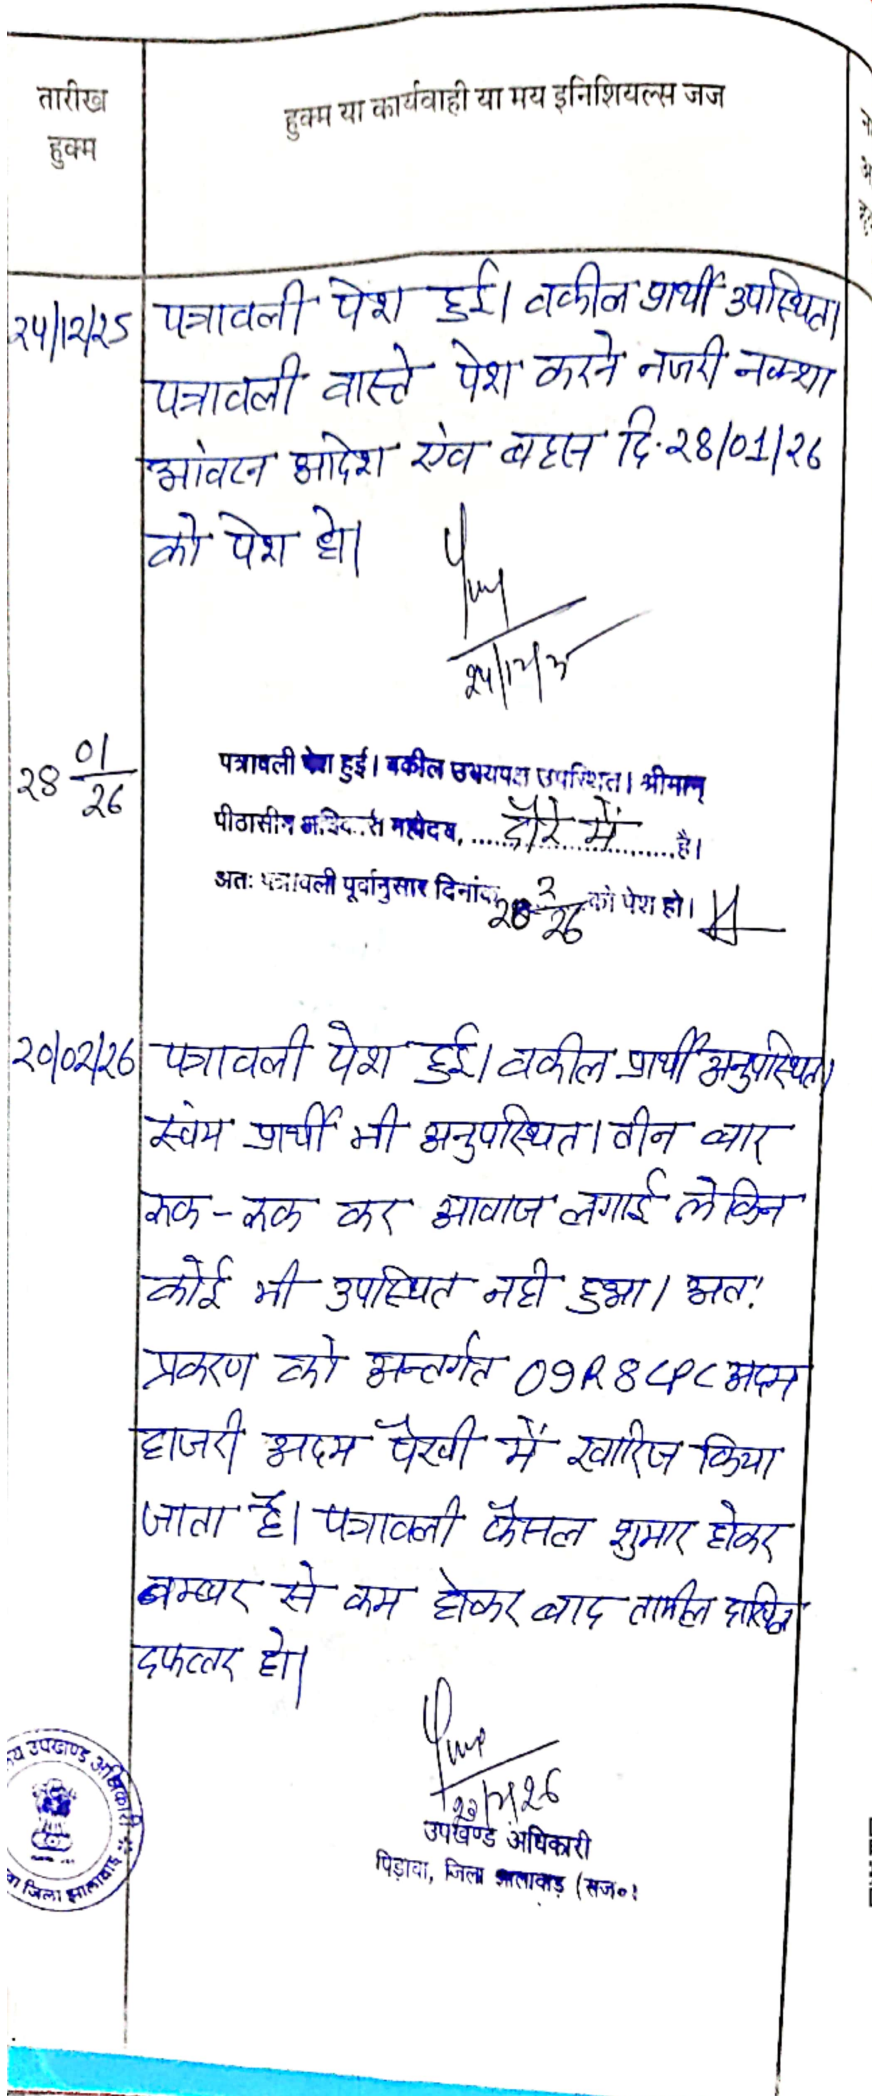 तारीख
हुक्म
हुक्म या कार्यवाही या मय इनिशियल्स जज
२४/१२/२5 पत्रावली पेश हुई। वकील प्रार्थी उपस्थित।
पत्रावली वास्ते पेश करने नजरी नक्शा
आंवटन आदेश एंव बहस दि. २8/01/२6
को पेश हो।
२४/१२/२५
२8 01/26
पत्रावली पेश हुई। वकील उभयपक्ष उपस्थित। श्रीमान्
पीठासीन अधिकारी महोदय, दौरे में है।
अतः पत्रावली पूर्वानुसार दिनांक 2/26 को पेश हो।
२०/०२/२6 पत्रावली पेश हुई। वकील प्रार्थी अनुपस्थित।
स्वंय प्रार्थी भी अनुपस्थित। तीन बार
रूक-रूक कर आवाज लगाई लेकिन
कोई भी उपस्थित नही हुआ। अत:
प्रकरण को अन्तर्गत O9R8 CPC अदम
हाजरी अदम पैरवी में खारिज किया
जाता है। पत्रावली फैसल शुमार होकर
नम्बर से कम होकर बाद तामील दाखिल
दफ्तर हो।
उपखण्ड अधिकारी
पिड़ावा, जिला झालावाड़ (राज०)
उपखण्ड अधिकारी
जिला झालावाड़